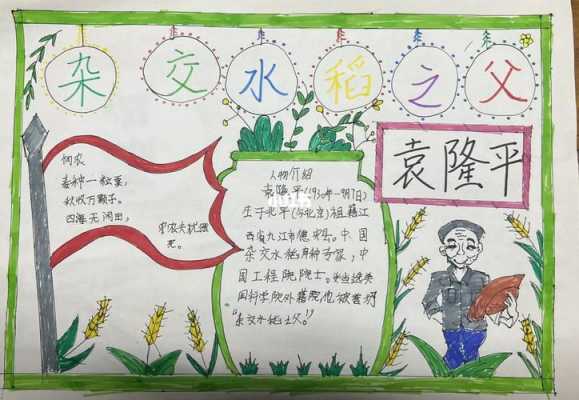 杂交水稻之父
袁隆平
悯农
春种一粒粟,
秋收万颗子。
四海无闲田,
农夫犹饿
死。
人物介绍
袁隆平(1930年9月7日)
生于北平(今北京)祖籍江
西省九江市德安县。中国
杂交水稻育种专家,中
国工程院院士。当选美
国科学院外籍院
"杂交水稻之父。"